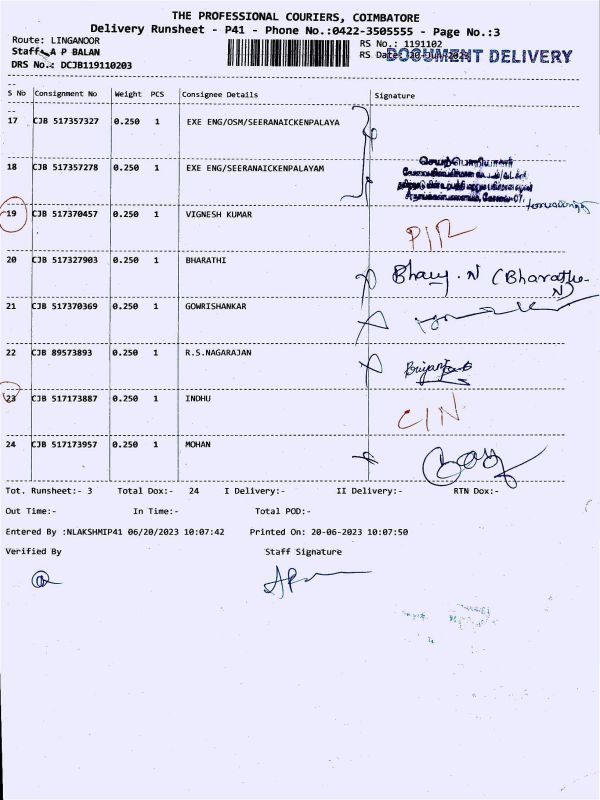 THE PROFESSIONAL COURIERS, COIMBATORE
Delivery Runsheet - P41 - Phone No.:0422-3505555 - Page No.:3
Route: LINGANOOR RS No.: 1191102
Staff: A P BALAN RS Date: DOCUMENT DELIVERY
DRS No.: DCJB119110203
S No Consignment No Weight PCS Consignee Details Signature
17 CJB 517357327 0.250 1 EXE ENG/OSM/SEERANAICKENPALAYA
18 CJB 517357278 0.250 1 EXE ENG/SEERANAICKENPALAYAM
19 CJB 517370457 0.250 1 VIGNESH KUMAR
20 CJB 517327903 0.250 1 BHARATHI
21 CJB 517370369 0.250 1 GOWRISHANKAR
22 CJB 89573893 0.250 1 R.S.NAGARAJAN
23 CJB 517173887 0.250 1 INDHU CIN
24 CJB 517173957 0.250 1 MOHAN
Tot. Runsheet:- 3 Total Dox:- 24 I Delivery:- II Delivery:- RTN Dox:-
Out Time:- In Time:- Total POD:-
Entered By :NLAKSHMIP41 06/20/2023 10:07:42 Printed On: 20-06-2023 10:07:50
Verified By Staff Signature